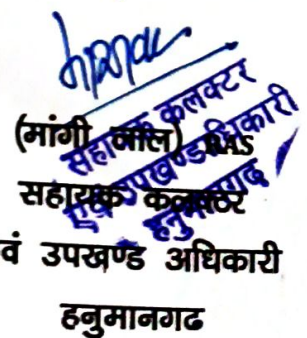 सहायक कलक्टर
एवं उपखण्ड अधिकारी
हनुमानगढ
(मांगी लाल) RAS
सहायक कलक्टर
वं उपखण्ड अधिकारी
हनुमानगढ